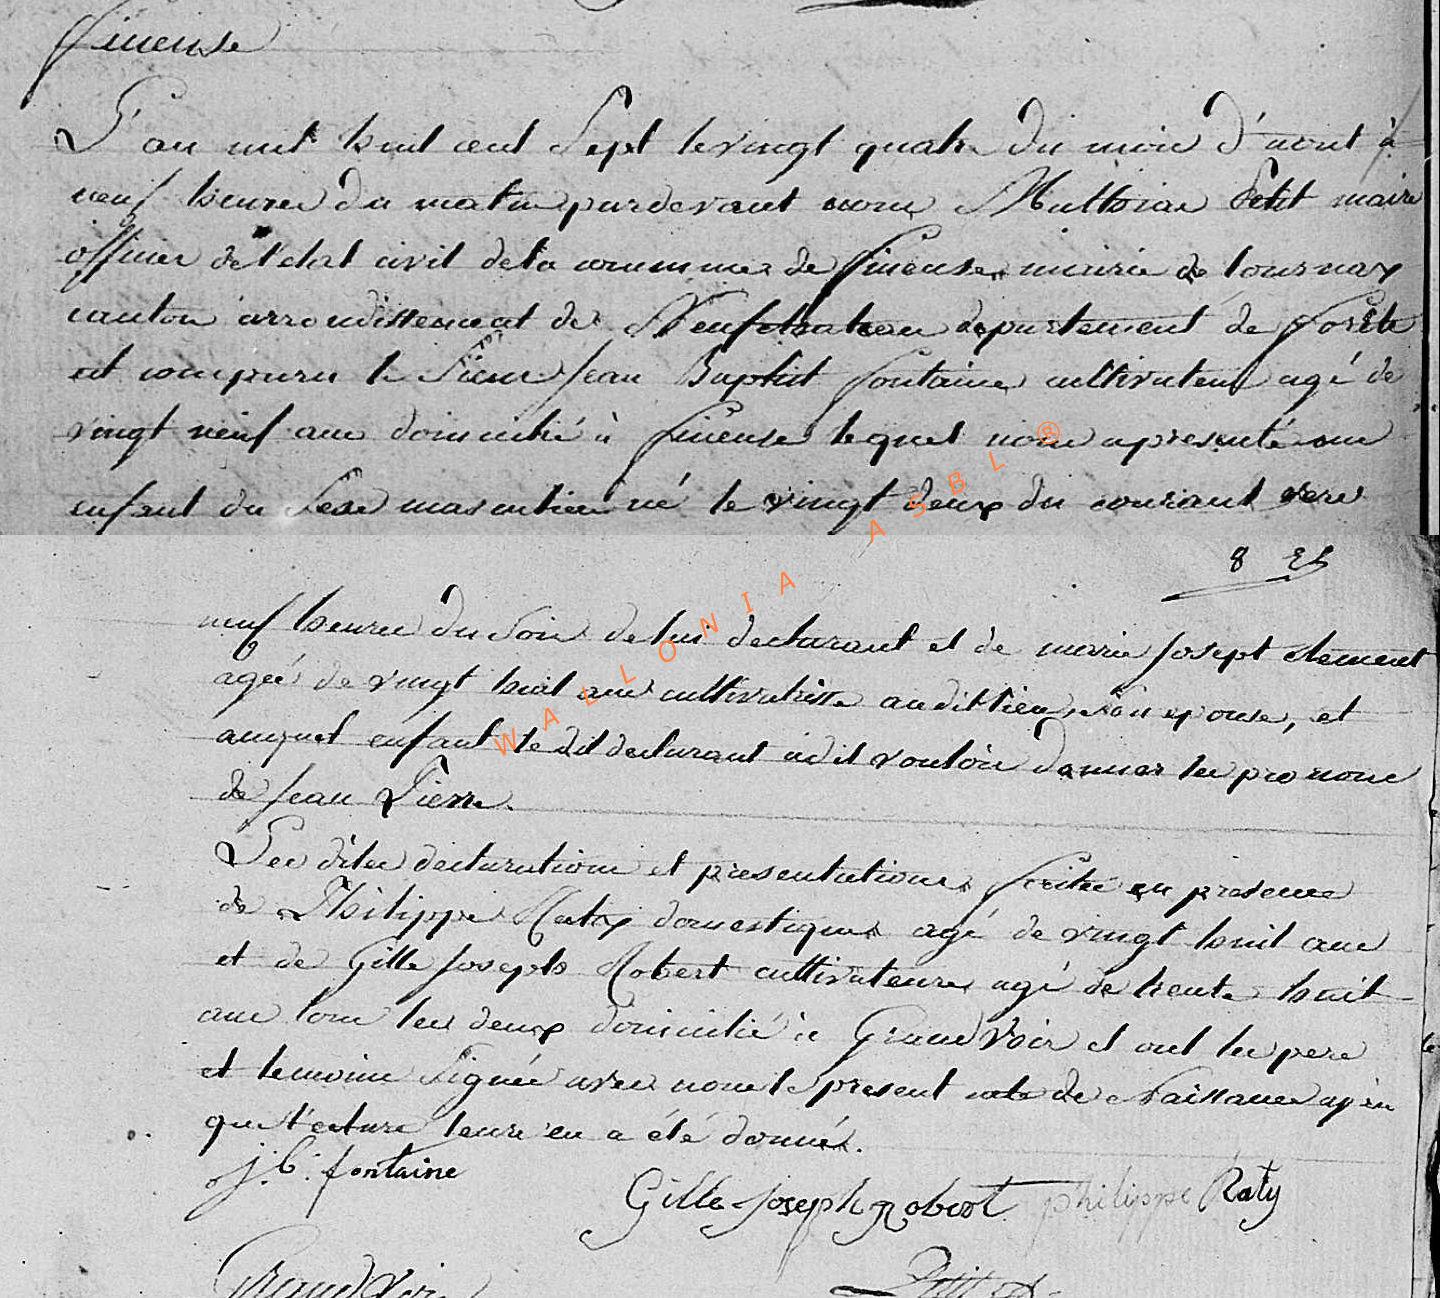 fineuse
L'an mil huit cent Sept le vingt quatre du mois d'aout à
neuf heures du matin pardevant nous Mathias Petit maire
officier de l'etat civil de la commune de fineuse mairie de tournay
canton arrondissement de Neufchateau departement de forêts
est comparu le Sieur Jean Baptist fontaine cultivateur agé de
vingt neuf ans domicilié à fineuse lequel nous a presenté un
enfant du Sexe masculien né le vingt deux du courant vers
8
neuf heures du Soir de lui declarant et de marie Joseph clement
agée de vingt huit ans cultivatrisse audit lieu, Son epouse, et
auquel enfant le dit declarant a dit vouloir donner les prenoms
de Jean Pierre.
Les dites declarations et presentations faites en presence
de Philippe Raty domestique agé de vingt huit ans
et de Gille Joseph Robert cultivateur agé de trente huit
ans tous les deux domicilié à Grand Voir et ont les pere
et temoins Signés avec nous le present acte de Naissance après
que lecture leurs en a été donnés.
j. b. fontaine
Gille Joseph Robert philippe Raty
Grandvoir
Petit
WALLONIA ASBL ®